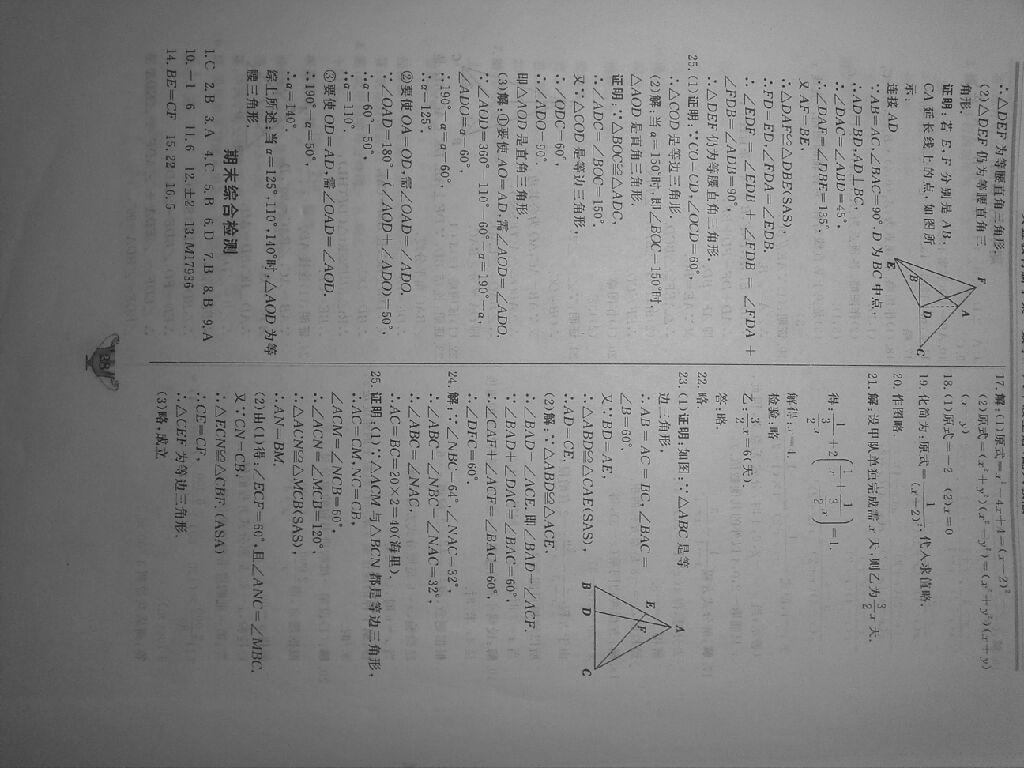 ∴△DEF为等腰直角三角形.
(2)△DEF仍为等腰直角三
角形.
证明:若E、F分别是AB、
CA延长线上的点,如图所
示:
连接AD.
∵AB=AC,∠BAC=90°,D为BC中点,
∴AD=BD,AD⊥BC,
∴∠DAC=∠ABD=45°.
∴∠DAF=∠DBE=135°.
又AF=BE,
∴△DAF≌△DBE(SAS),
∴FD=ED,∠FDA=∠EDB.
∴∠EDF=∠EDB+∠FDB=∠FDA+
∠FDB=∠ADB=90°.
∴△DEF仍为等腰直角三角形.
25.(1)证明:∵CO=CD,∠OCD=60°,
∴△COD是等边三角形.
(2)解:当α=150°时,即∠BOC=150°时,
△AOD是直角三角形.
证明:∵△BOC≌△ADC,
∴∠ADC=∠BOC=150°.
又∵△COD是等边三角形,
∴∠ODC=60°,
∴∠ADO=90°.
即△AOD是直角三角形.
(3)解:①要使AO=AD,需∠AOD=∠ADO.
∵∠AOD=360°-110°-60°-α=190°-α,
∠ADO=α-60°,
∴190°-α=α-60°,
∴α=125°.
②要使OA=OD,需∠OAD=∠ADO.
∵∠OAD=180°-(∠AOD+∠ADO)=50°,
∴α-60°=50°,
∴α=110°.
③要使OD=AD,需∠OAD=∠AOD.
∴190°-α=50°,
∴α=140°.
综上所述:当α=125°,110°,140°时,△AOD为等
腰三角形.
期末综合检测
1.C 2.B 3.A 4.C 5.B 6.D 7.B 8.B 9.A
10.-1 6 11.6 12.±2 13.M17936
14.BE=CF 15.22 16.5
F
A
E
B
D
C
17.解:(1)原式=x²-4x+4=(x-2)²
(2)原式=(x²+y²)(x²-y²)=(x²+y²)(x+y)
(x-y)
18.(1)原式=-2 (2)x=0
19.化简为:原式=1/(x+2)²,代入求值略.
20.作图略
21.解:设甲队单独完成需x天,则乙为3/2x天,
得:1/(3/2x)+2(1/x+1/(3/2x))=1.
解得:x=4.
检验:略
乙:3/2x=6(天).
答:略.
22.略
23.(1)证明:如图:∵△ABC是等
边三角形,
∴AB=AC=BC,∠BAC=
∠B=60°.
又∵BD=AE,
∴△ABD≌△CAE(SAS),
∴AD=CE.
(2)解:∵△ABD≌△ACE.
∴∠BAD=∠ACE.即∠BAD=∠ACF.
∵∠BAD+∠DAC=∠BAC=60°,
∴∠CAF+∠ACF=∠BAC=60°,
∴∠DFC=60°.
A
E
F
B
D
C
24.解:∵∠NBC=64°,∠NAC=32°,
∴∠ABC=∠NBC-∠NAC=32°,
∴∠ABC=∠NAC.
∴AC=BC=20×2=40(海里).
25.证明:(1)∵△ACM与△BCN都是等边三角形,
∴AC=CM,NC=CB,
∠ACM=∠NCB=60°.
∴∠ACN=∠MCB=120°.
∴△ACN≌△MCB(SAS),
∴AN=BM.
(2)由(1)得:∠ECF=60°,且∠ANC=∠MBC,
又∵CN=CB,
∴△ECN≌△CBF.(ASA)
∴CE=CF,
∴△CEF为等边三角形.
(3)略,成立
28